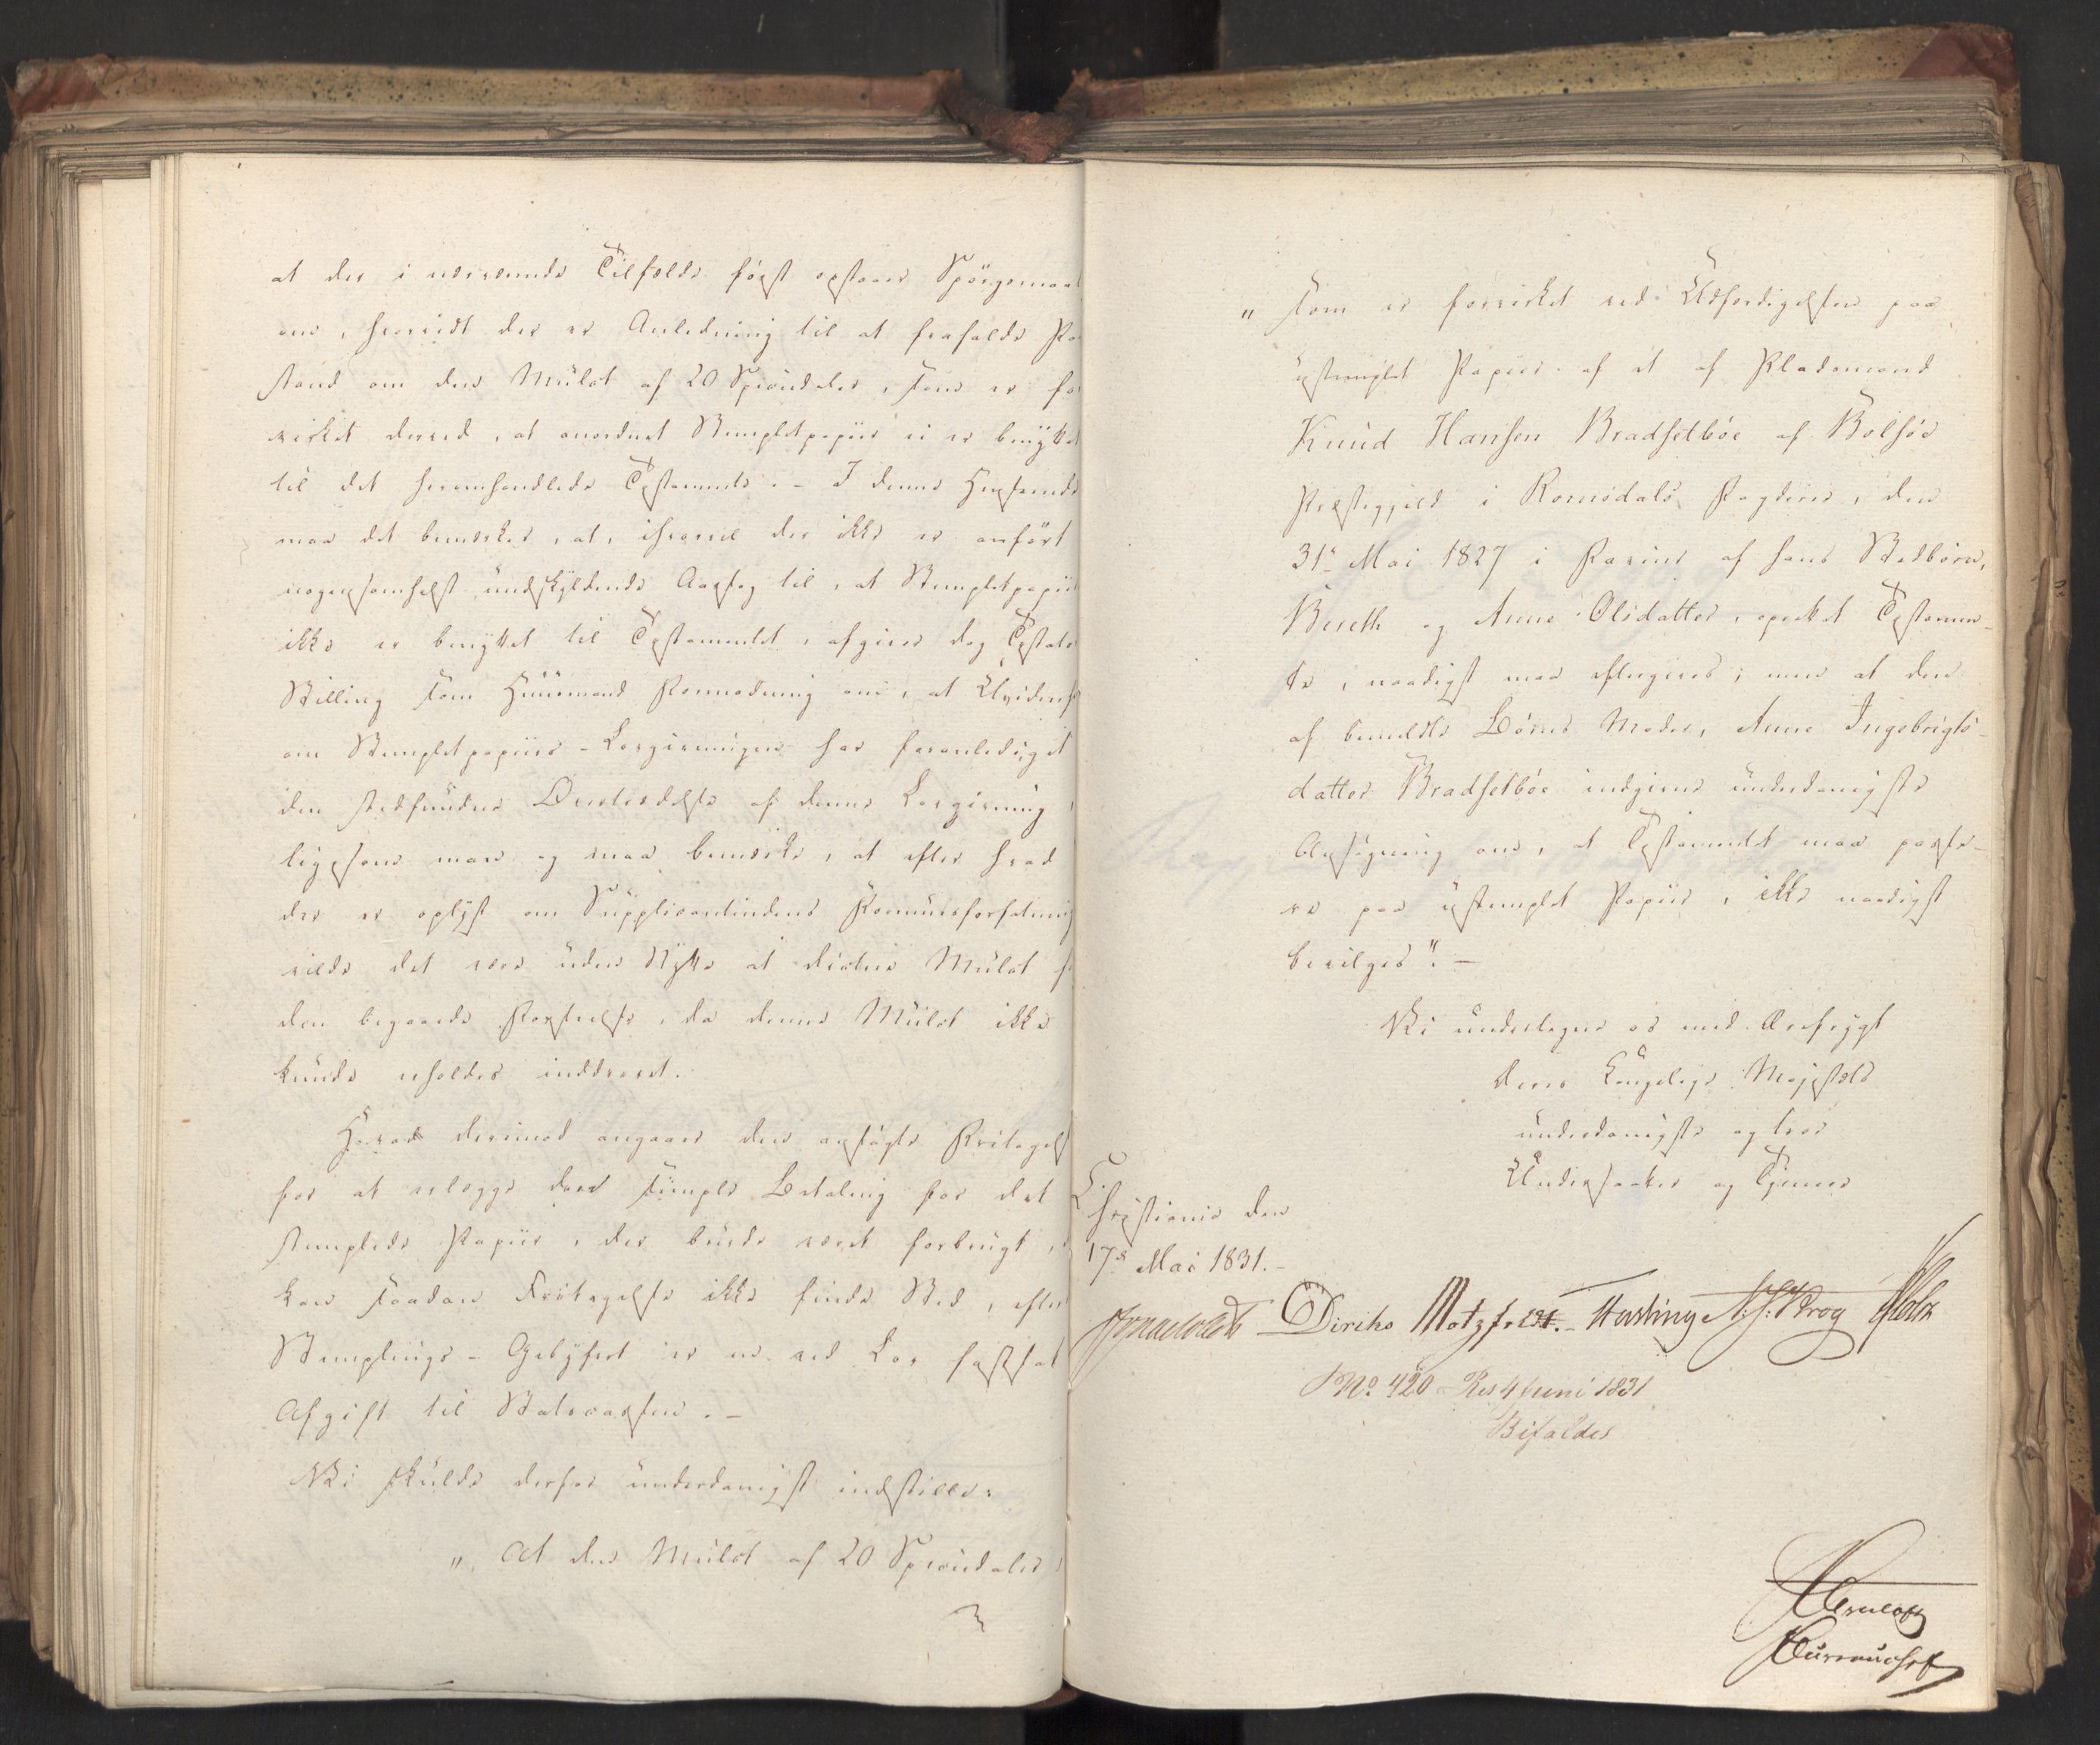 at der i nærværende Tilfælde først opstaaer Spörgsmaal
om, hvorvidt der er Anledning til at frafalde Paa
stand om den Mulct af 20 Speciedaler, som er for
virket derved, at anordnet Stempletpapiir ei er benyttet
til det heromhandlede Testamente. - I denne Henseende
maa det bemærkes, at, ihvorvel der ikke er anfört
nogensomhelst undskyldende Aarsag til, at Stempletpapiir
ikke er benyttet til Testamentet, afgiver dog Testators
Stilling som Huusmand Formodning om, at Uvidenhed
om Stempletpapiirs-Lovgivningen har foranlediget
den stedfundne Overtrædelse af denne Lovgivning,
ligesom man og maa bemærke, at efter hvad
der er oplyst om Supplicantindens Formuesforfatning
vilde det være uden Nytte at dictere Mulct for
den begaaede Forseelse, da denne Mulct ikke
kunde erholdes inddrevet.
Hvad derimod angaaer den ansögte Fritagelse
for at erlægge den simple Betaling for det
stemplede Papiir, der burde været forbrugt,
kan saadan Fritagelse ikke finde Sted, efter
Stemplings-Gebyhret er en ved Lov fastsat
Afgift til Statscassen. -
Vi skulde derfor underdanigst indstille:
„At den Mulct af 20 Speciedaler,
„som er forvirket ved Udfærdigelsen paa
ustemplet Papiir af et af Pladsmand
Knud Hansen Bradsetböe af Bolsöe
Præstegjeld i Romsdals Fogderie, den
31te Mai 1827 i Faveur af hans Stedbörn,
Bereth og Anne Olsdatter, oprettet Testamen-
te, naadigst maa eftergives; men at den
af bemeldte Börns Moder, Anne Ingebrigts-
datter Bradsetböe indgivne underdanigste
Ansögning om, at Testamentet maa passe-
re paa ustemplet Papiir, ikke naadigst
bevilges". -
Vi undertegne os med Ærefrygt
Deres Kongelige Majestæts
underdanigste og troe
Undersaatter og Tjenere
Christiania den
17de Mai 1831. -
Diriks Motzfeldt. - Hersleb N: J: Krog Holst
No 420 - Res 4 Juni 1831
Bifaldes